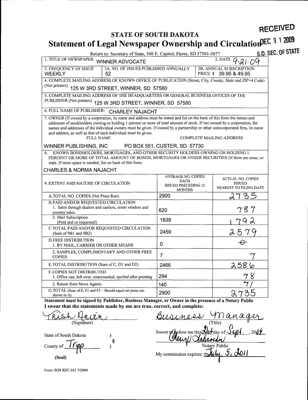 RECEIVED
DEC 31 2009
S.D. SEC. OF STATE
STATE OF SOUTH DAKOTA
Statement of Legal Newspaper Ownership and Circulation
Return to: Secretary of State, 500 E. Capitol, Pierre, SD 57501-5077
1. TITLE OF NEWSPAPER WINNER ADVOCATE
2. DATE 9-21-09
3. FREQUENCY OF ISSUE WEEKLY
3A. NO. OF ISSUES PUBLISHED ANNUALLY 52
3B. ANNUAL SUBSCRIPTION PRICE $ 39.95 & 49.95
4. COMPLETE MAILING ADDRESS OF KNOWN OFFICE OF PUBLICATION (Street, City, County, State and ZIP+4 Code)
(Not printers) 125 W 3RD STREET, WINNER, SD 57580
5. COMPLETE MAILING ADDRESS OF THE HEADQUARTERS OR GENERAL BUSINESS OFFICES OF THE
PUBLISHER (Not printer) 125 W 3RD STREET, WINNER, SD 57580
6. FULL NAME OF PUBLISHER: CHARLEY NAJACHT
7. OWNER (If owned by a corporation, its name and address must be stated and list on the back of this form the names and
addresses of stockholders owning or holding 1 percent or more of total amount of stock. If not owned by a corporation, the
names and addresses of the individual owners must be given. If owned by a partnership or other unincorporated firm, its name
and address, as well as that of each individual must be given.)
FULL NAME COMPLETE MAILING ADDRESS
WINNER PUBLISHING, INC PO BOX 551, CUSTER, SD 57730
8. KNOWN BONDHOLDERS, MORTGAGES, AND OTHER SECURITY HOLDERS OWNING OR HOLDING 1
PERCENT OR MORE OF TOTAL AMOUNT OF BONDS, MORTGAGES OR OTHER SECURITIES (If there are none, so
state. If more space is needed, list on back of this form.
CHARLES & NORMA NAJACHT
9. EXTENT AND NATURE OF CIRCULATION
AVERAGE NO. COPIES EACH ISSUED PRECEDING 12 MONTHS
ACTUAL NO. COPIES ISSUED NEAREST TO FILING DATE
A. TOTAL NO. COPIES (Net Press Run) 2900 2735
B. PAID AND/OR REQUESTED CIRCULATION
1. Sales through dealers and carriers, street vendors and
counter sales. 620 787
2. Mail Subscription
(Paid and/or requested) 1839 1792
C. TOTAL PAID AND/OR REQUESTED CIRCULATION
(Sum of 9B1 and 9B2) 2459 2579
D. FREE DISTRIBUTION
1. BY MAIL, CARRIER OR OTHER MEANS 0 0
2. SAMPLES, COMPLIMENTARY AND OTHER FREE
COPIES 7 7
E. TOTAL DISTRIBUTION (Sum of C, D1 and D2) 2466 2586
F. COPIES NOT DISTRIBUTED
1. Office use, left over, unaccounted, spoiled after printing 294 78
2. Return from News Agents 140 71
G. TOTAL (Sum of E, F1 and F2 - Should equal net press run
shown in A) 2900 2735
Statement must be signed by Publisher, Business Manager, or Owner in the presence of a Notary Public
I swear that the statements made by me are true, correct, and complete:
Business Manager
(Signature) (Title)
State of South Dakota )
County of Tripp )
§
(Seal)
Sworn before me this day of Sept. 2009
Notary Public
My commission expires: July 5, 2011